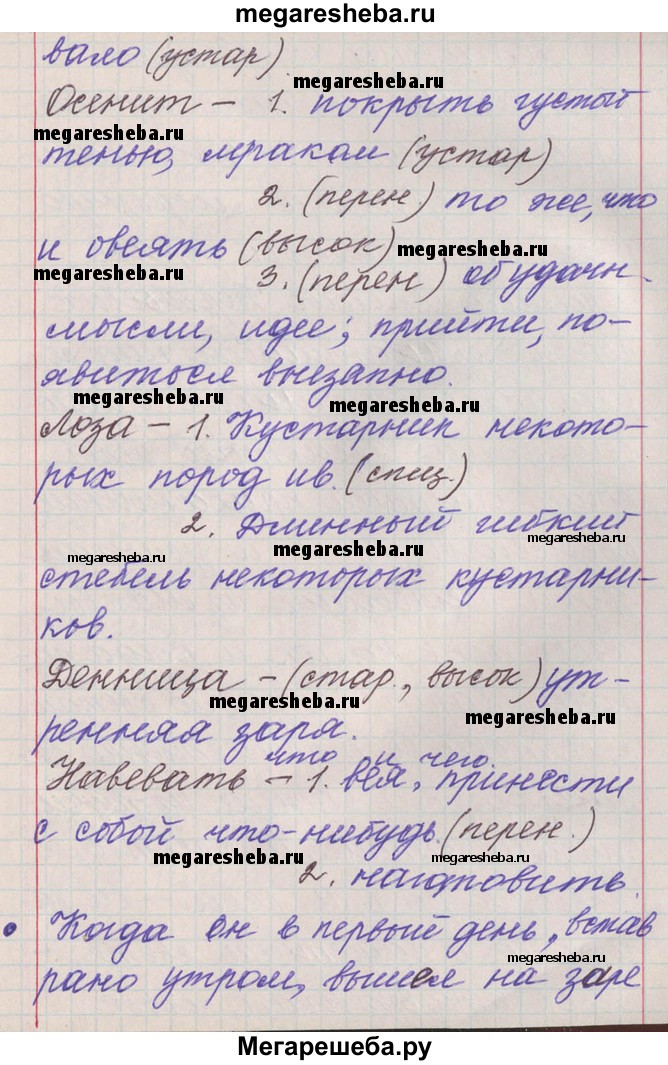 megaresheba.ru
вало (устар)
megaresheba.ru
Осенит – 1. покрыть густой
megaresheba.ru
тенью, мраком (устар)
2. (перен.) то же, что
и овеять (высок) megaresheba.ru
megaresheba.ru
3. (перен) об удачн.
мысли, идее; прийти, по-
явиться внезапно.
megaresheba.ru megaresheba.ru
Лоза – 1. Кустарник некото-
рых пород ив. (спец.)
2. Длинный гибкий
megaresheba.ru
megaresheba.ru megaresheba.ru
стебель некоторых кустарни-
ков.
Денница – (стар., высок) ут-
megaresheba.ru megaresheba.ru
ренняя заря.
что и чего.
Навевать – 1. вея, принести
megaresheba.ru
с собой что-нибудь. (перен.)
megaresheba.ru megaresheba.ru
2. наготовить.
Когда он в первый день, встав
megaresheba.ru megaresheba.ru
рано утром, вышел на заре
Мегарешеба.ру